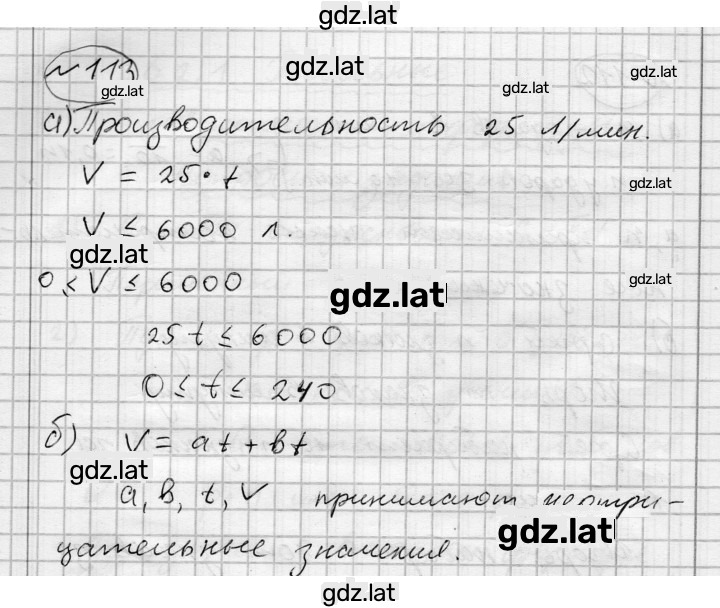 gdz.lat
№ 113
gdz.lat
gdz.lat
gdz.lat
gdz.lat
а) Производительность 25 л/мин.
V = 25 · t
gdz.lat
V ≤ 6000 л.
gdz.lat
0 ≤ V ≤ 6000
gdz.lat
gdz.lat
25 t ≤ 6000
0 ≤ t ≤ 240
б) V = at + bt
gdz.lat
a, b, t, V принимают неотри-
gdz.lat
цательные значения.
gdz.lat